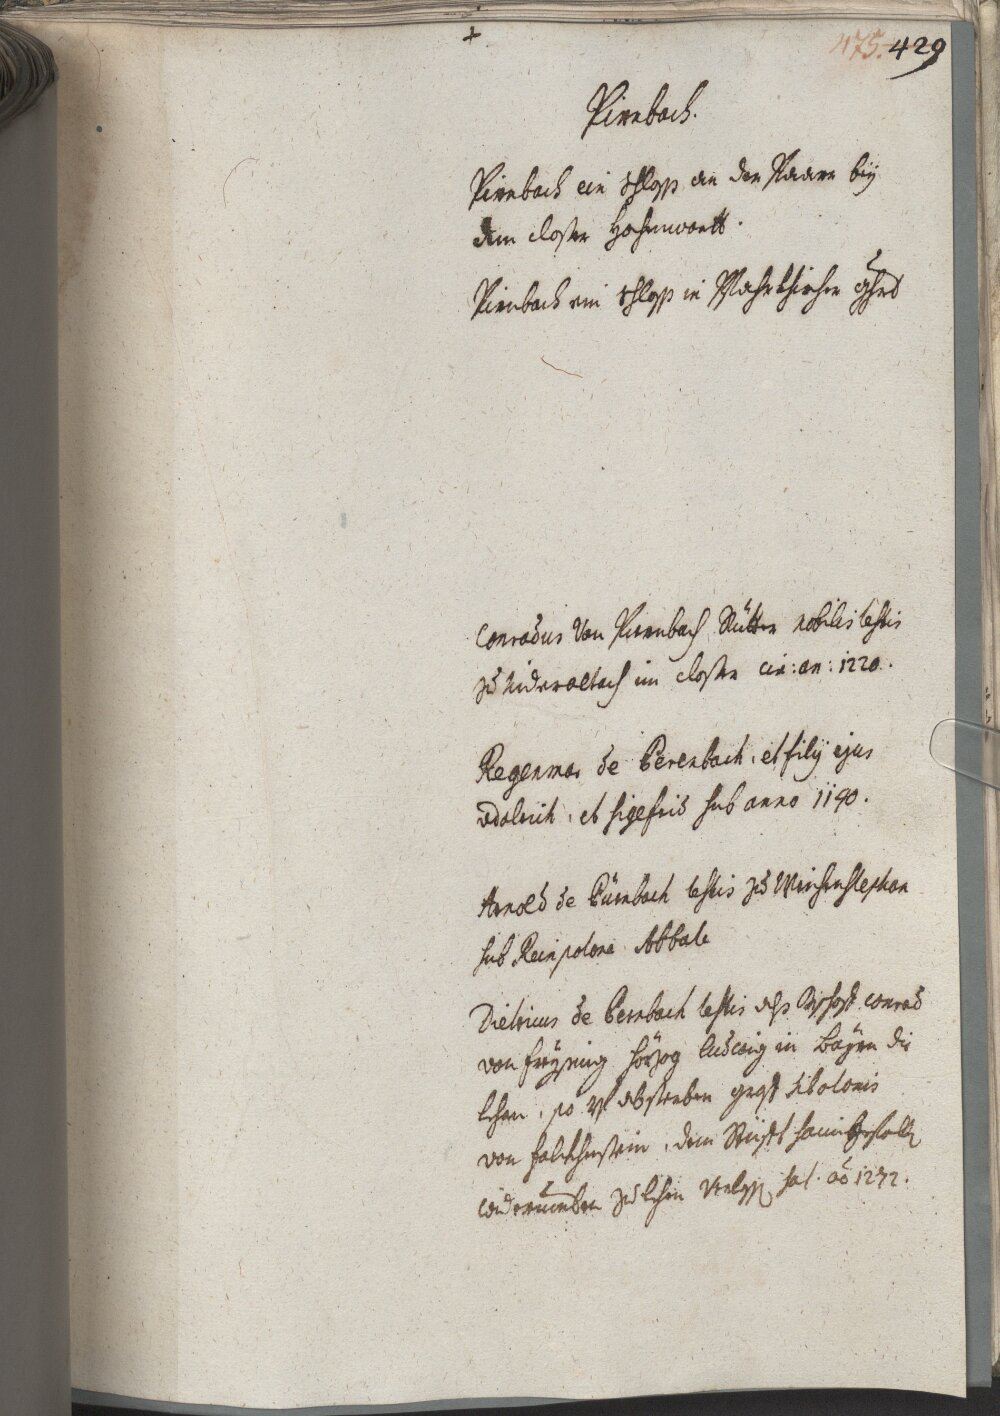 +
475. 429
Pirnbach.
Pirnbach ein schloß an der Paarn bÿ
dem closter Hochenwartt.
Pirnbach ein schloß in gricht
Conradus Von Pirnbach Rütter nobilis testis
zu Nideraltach im closter cir: an: 1220.
Regenmar de Perenbach, et filij ejus
Vdalrich, et sigefrid sub anno 1190.
Arnold de Pürnbach testis zu Weichenstephan
sub Abbate
Dietricus de Pernbach testis alß Bischoff Conrad
von Freÿsing Hörzog Ludwig in Baÿrn die
lehen, so absterben graff Sibotonis
von Falckhenstein, dem Stüfft
widerumben zu lehen hat. aõ 1272.